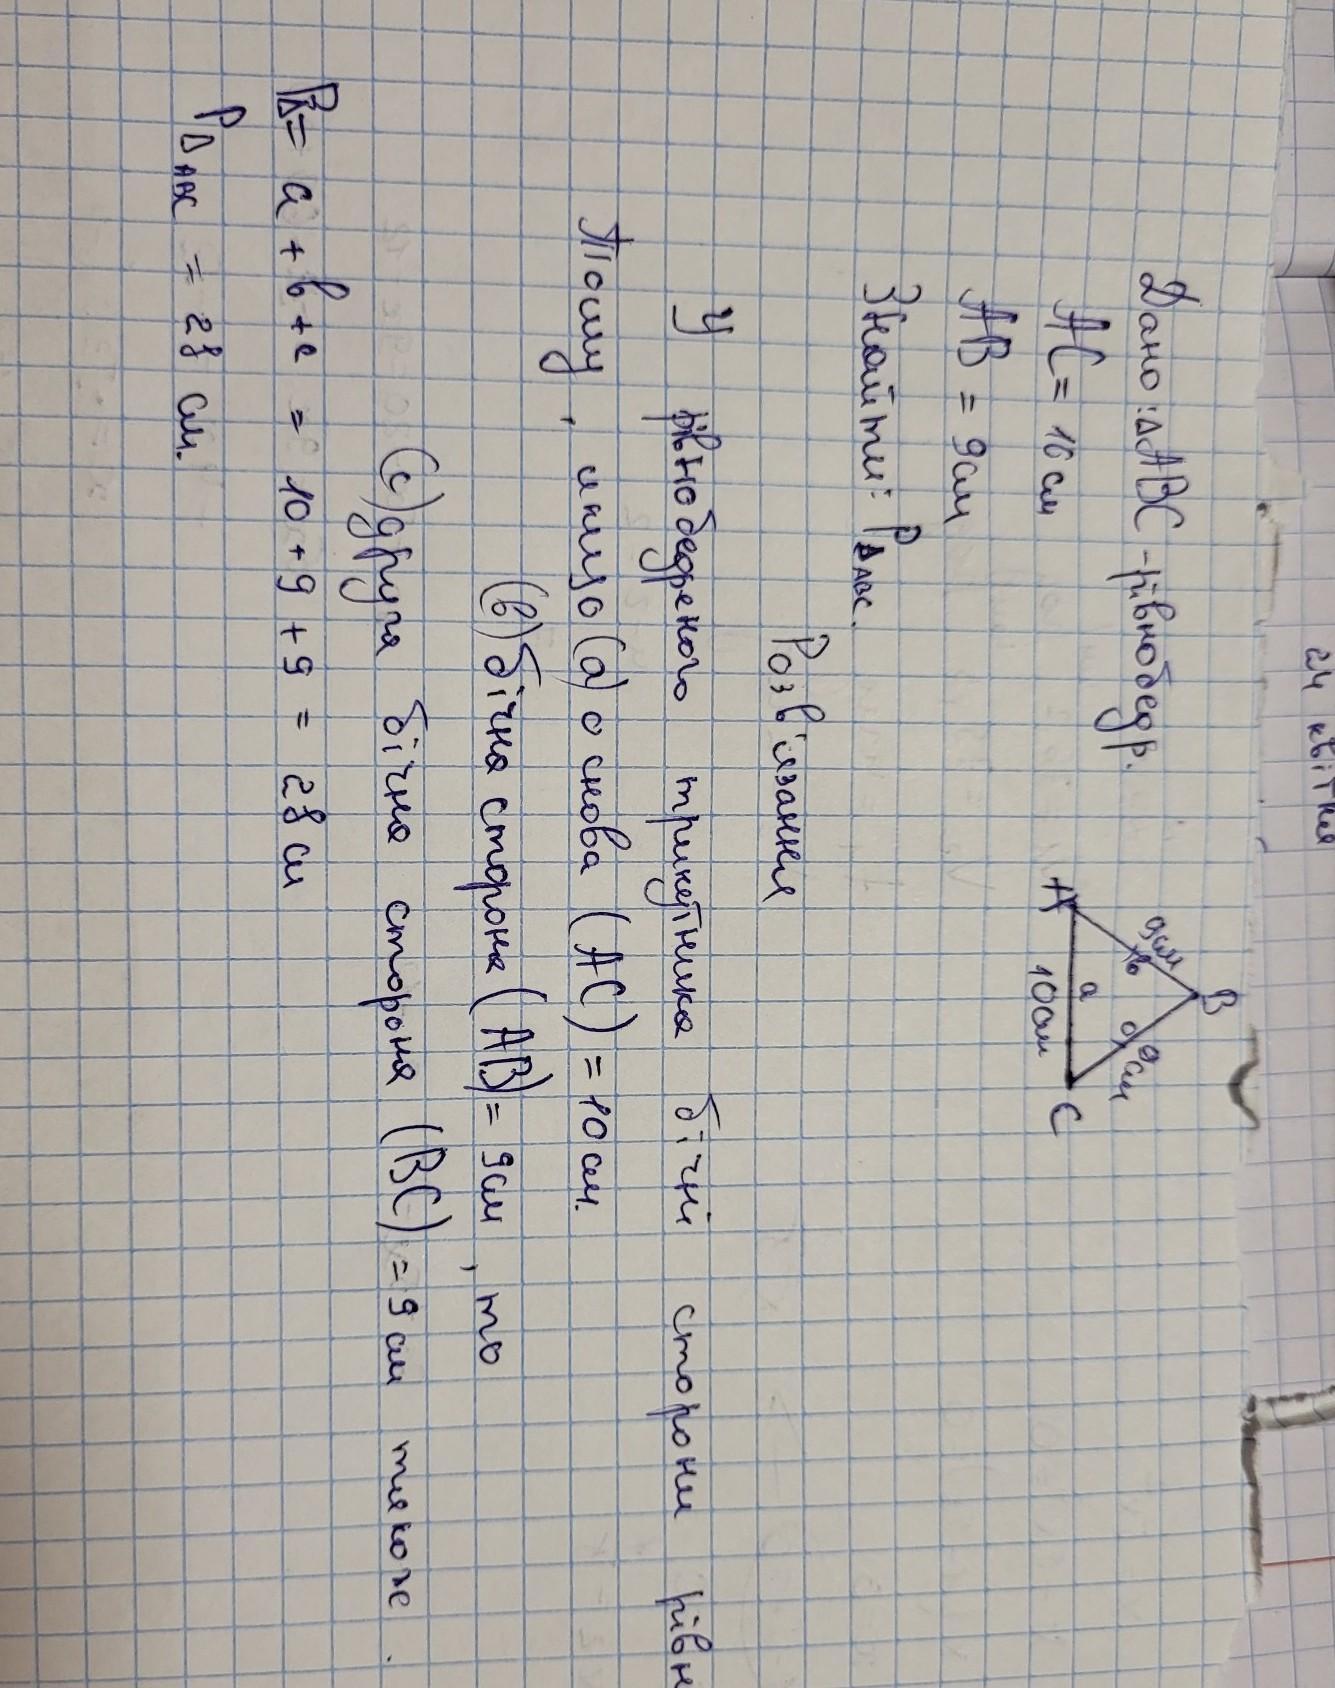 24 квітня
Дано: ΔABC - рівнобедр.
AC = 10 см
AB = 9 см
Знайти: P ΔABC.
B
9 см
9 см
в
c
a
A
10 см
C
Розв'язання
У рівнобедреного трикутника бічні сторони рівн
Тому, якщо (a) основа (AC) = 10 см.
(в) бічна сторона (AB) = 9 см, то
(c) друга бічна сторона (BC) = 9 см також.
PΔ = a + в + c = 10 + 9 + 9 = 28 см
P ΔABC = 28 см.